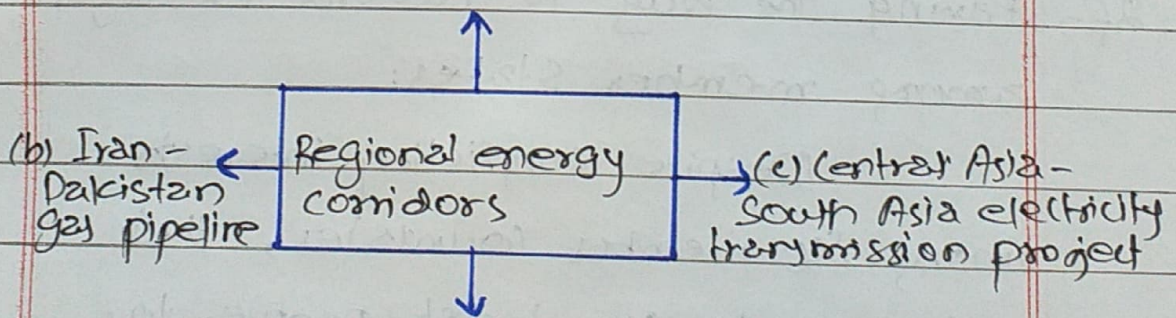 (b) Iran-
Pakistan
gas pipeline
Regional energy
corridors
(c) Central Asia-
South Asia electricity
transmission project